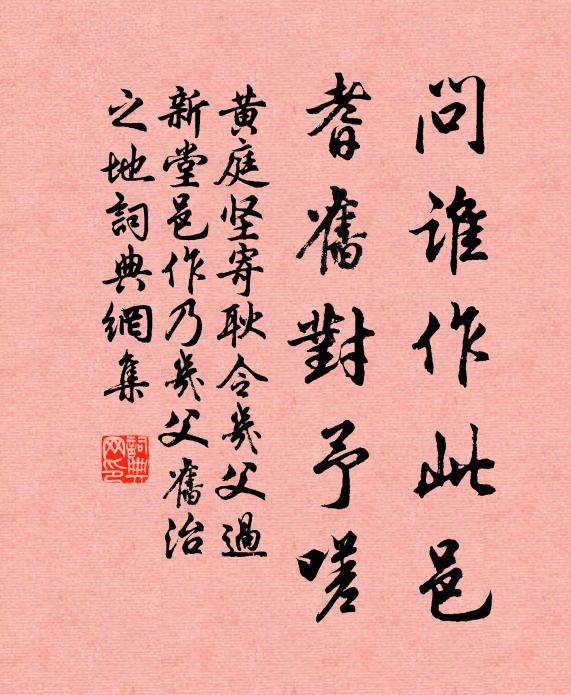 問誰作此邑
耆舊對予嗟
黄庭坚寄耿令幾父過
新堂邑作乃幾父舊治
之地詞典網集
詞典网印